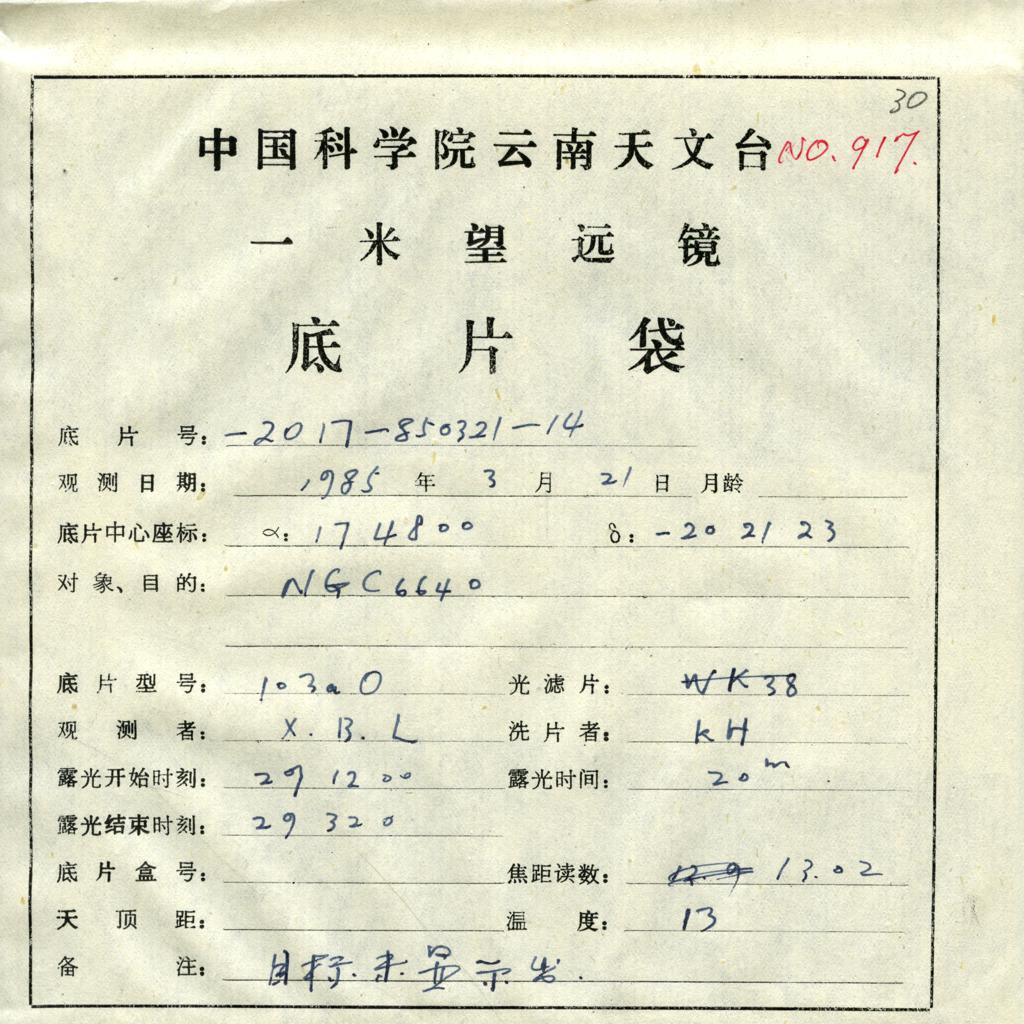 30
中国科学院云南天文台 NO.917.
一米望远镜
底片袋
底片号：-2017-850321-14
观测日期：1985年3月21日 月龄
底片中心座标：α：17 48 00 δ：-20 21 23
对象、目的：NGC6640
底片型号：103aO 光滤片：WK38
观测者：X.B.L 洗片者：KH
露光开始时刻：29 12 00 露光时间：20m
露光结束时刻：29 32 0
底片盒号： 焦距读数：13.02
天顶距： 温度：13
备注：目标未显示出.